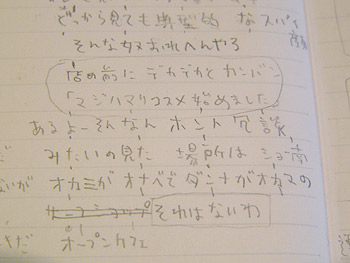 どっから見ても典型的なスパイ
そんな奴おれへんやろ
店の前にデカデカとカンバン
「マジハマリコスメ始めました
あるよーそんなん ホント冗談
みたいの見た 場所はショ南
オカミがオナベでダンナがオカマの
サーフショップ それはないわ
オープンカフェ